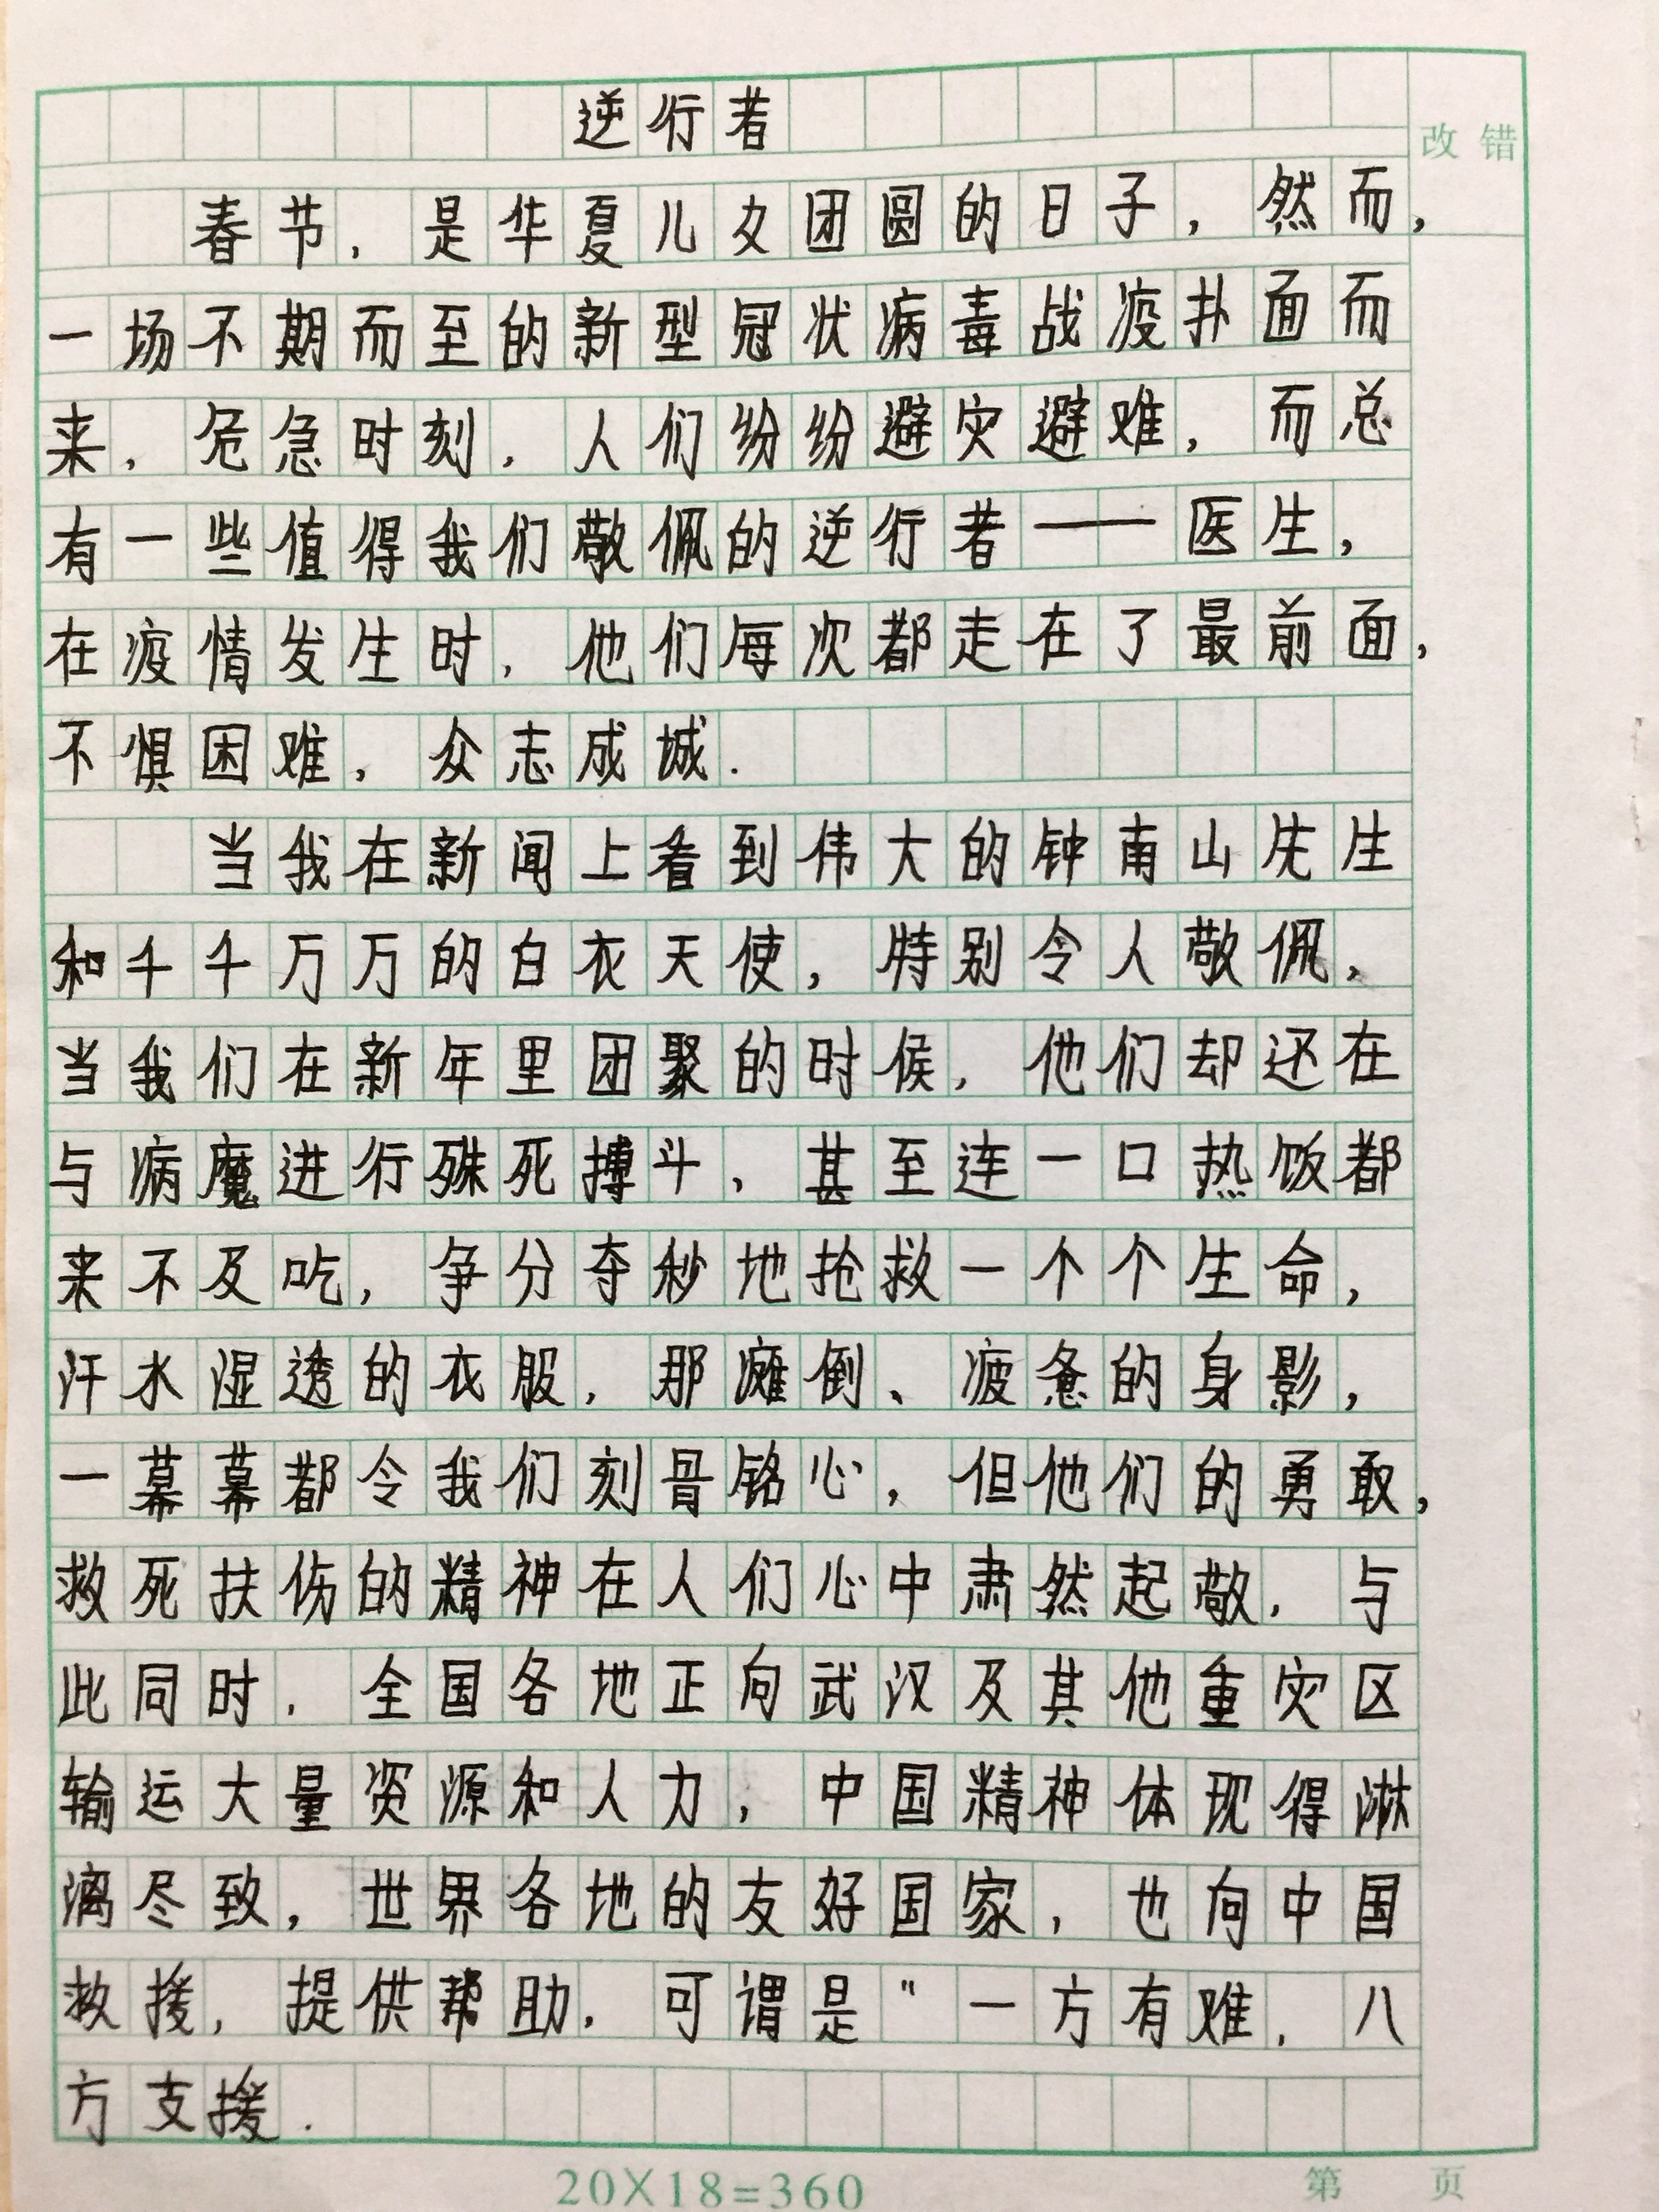 逆行者
改错
春节，是华夏儿女团圆的日子，然而，
一场不期而至的新型冠状病毒战疫扑面而
来，危急时刻，人们纷纷避灾避难，而总
有一些值得我们敬佩的逆行者——医生，
在疫情发生时，他们每次都走在了最前面，
不惧困难，众志成城.
当我在新闻上看到伟大的钟南山先生
和千千万万的白衣天使，特别令人敬佩，
当我们在新年里团聚的时候，他们却还在
与病魔进行殊死搏斗，甚至连一口热饭都
来不及吃，争分夺秒地抢救一个个生命，
汗水湿透的衣服，那瘫倒、疲惫的身影，
一幕幕都令我们刻骨铭心，但他们的勇敢，
救死扶伤的精神在人们心中肃然起敬，与
此同时，全国各地正向武汉及其他重灾区
输运大量资源和人力，中国精神体现得淋
漓尽致，世界各地的友好国家，也向中国
救援，提供帮助，可谓是"一方有难，八
方支援.
20×18=360
第 页